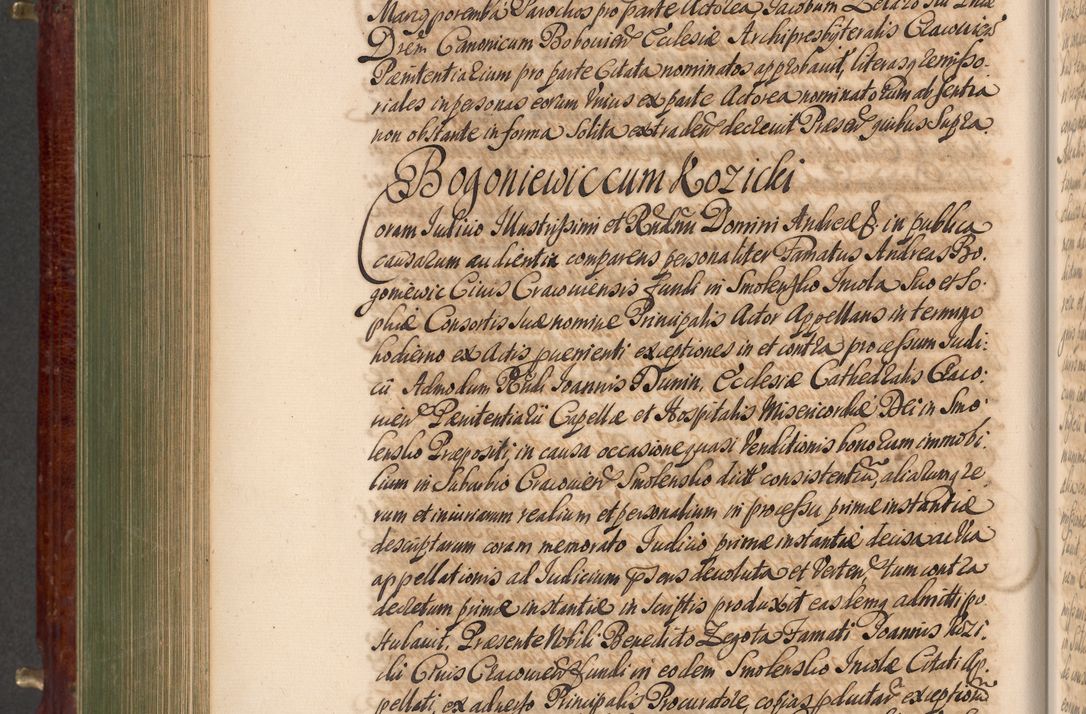 Drem Canonicum Bobovien Ecclesiæ Archipresbyteralis Cracovien
Pænitentiarium pro parte Citata nominatos approbauit, literasq; remisso-
riales in personas eorum Vnius ex parte Actorea nominatorum absentia
non obstante in forma Solita extraden decreuit Præsen quibus Supra
Bogoniewic cum Kozicki
Coram Iudicio Illustrissimi et Rndmi Domini Andreæ &. in publica
causarum audientia comparens personaliter Famatus Andreas Bo-
goniewic Ciuis Cracouiensis fundi in Smolensko Incola Suo et So-
phiæ Consortis Suæ nomine Principalis Actor Appellans in termino
hodierno ex Actis puenienti exceptiones in et contra processum Iudi-
cii Admodum Rndi Ioannis Dunin, Ecclesiæ Cathedralis Craco-
uien Pænitentiarii Capellæ et Hospitalis Misericordiæ Dei in Smo-
lensko Præpositi, in causa occasione quasi Venditionis bonorum immobi-
lium in Suburbio Cracouien Smolensko dict consistentiu, aliarumq; re-
rum et iniuriarum realium et personalium in processu primæ instantiæ
descriptarum coram memorato Iudicio primæ instantiæ decisa ac Via
appellationis ad Iudicium psens deuoluta et Verten, tum contra
decretum primæ instantiæ in Scriptis produxit easdemq; admitti po-
stulauit, Præsente Nobili Benedicto Zegota Famati Ioannis Kozi-
cki Ciuis Cracouien fundi in eodem Smolensko Incolæ Citati Ap-
pellati, ex aduerso Principalis Procuratore, copias pductar exceptionu